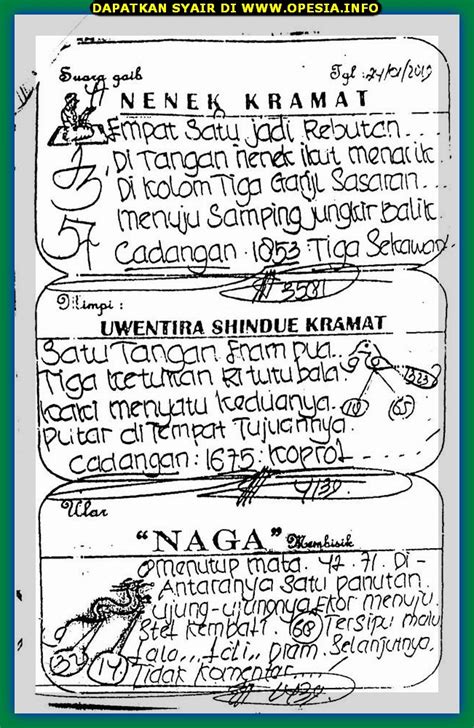 DAPATKAN SYAIR DI WWW.OPESIA.INFO
Suara gaib
Tgl : 24/01/2019
NENEK KRAMAT
Empat Satu jadi Rebutan...
Di Tangan nenek ikut menarik
Di kolom Tiga Ganjil Sasaran...
menuju Samping jungkir Balik
Cadangan : 1853 : Tiga Sekawan
3
57
3581
Dilimpi :
UWENTIRA SHINDUE KRAMAT
Satu Tangan Enam pua..
Tiga Ketuhan
menyatu Keduanya.
putar di Tempat Tujuannya.
Cadangan : 1675 : Koprol
10
65
4139
Ular
"NAGA" Membisik
menutup mata. 42. 71. Di-
Antaranya Satu panutan.
ujung-ujungnya Ekor menuju.
Stel Kembali. 68 Tersipu malu
Lalo... Diam. Selanjutnya.
Tidak Komentar....!
32
14